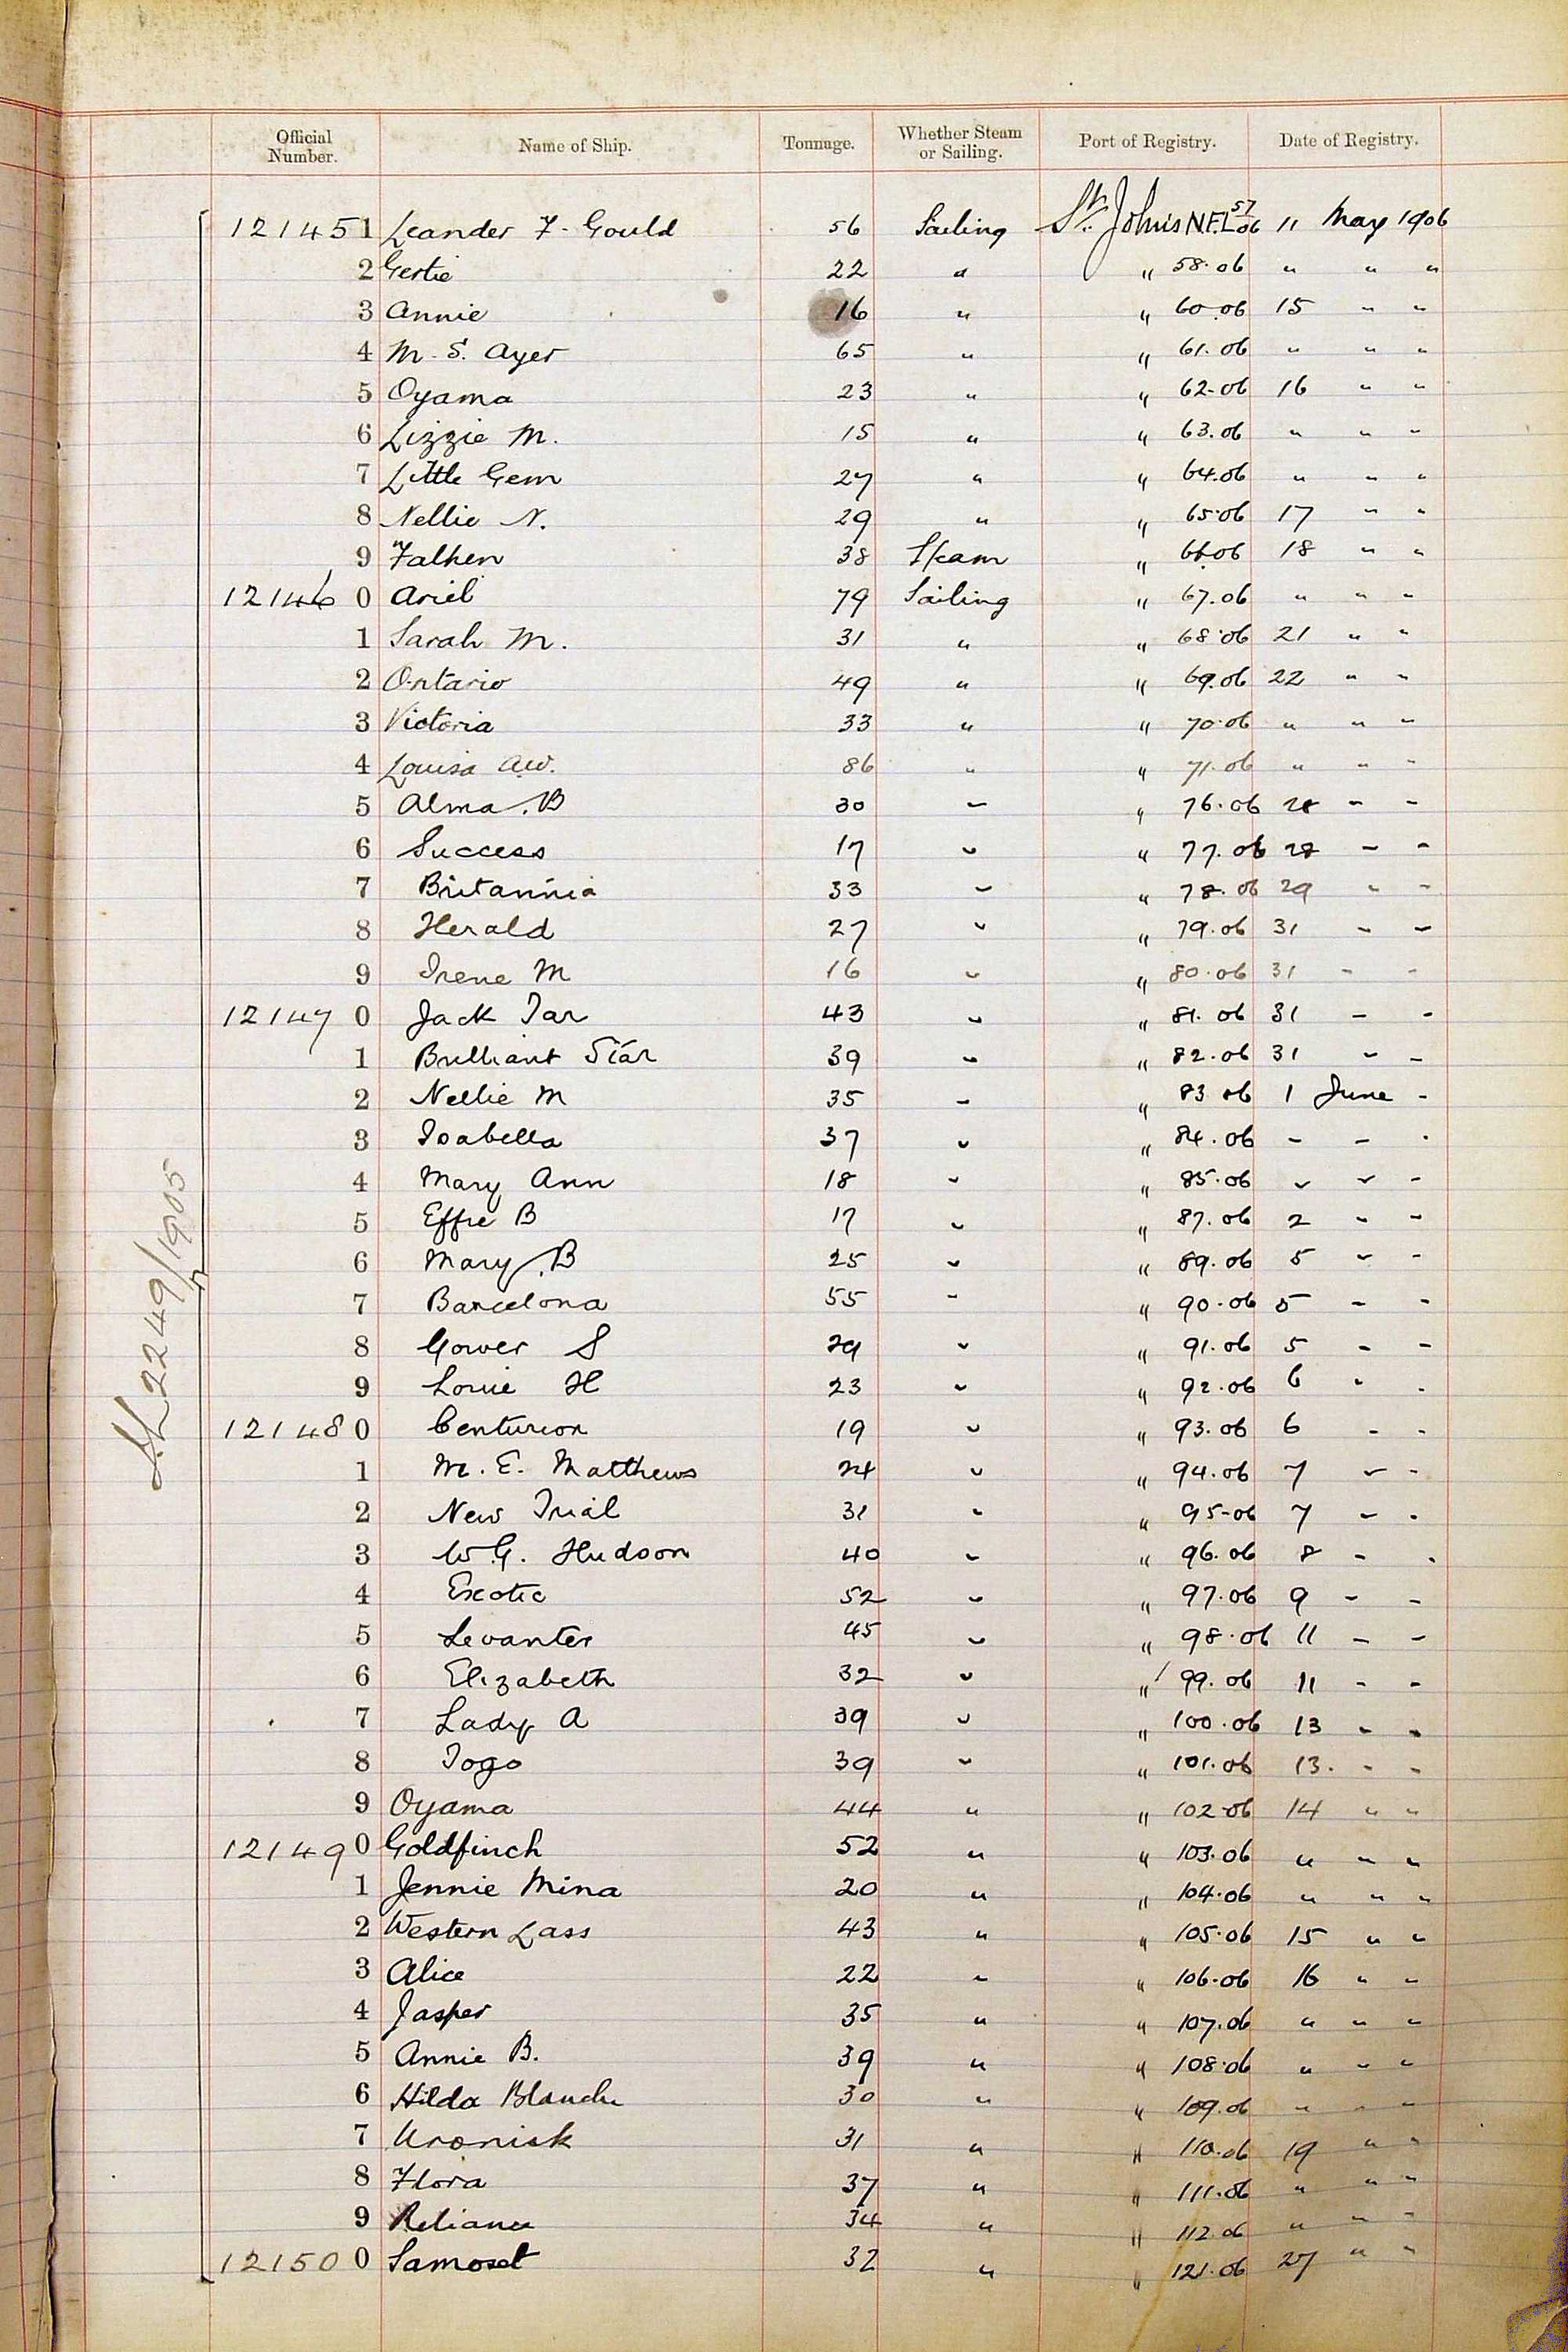 Official Number. Name of Ship. Tonnage. Whether Steam or Sailing. Port of Registry. Date of Registry.
121451 Leander F. Gould 56 Sailing St. John's N.F.L 57/06 11 May 1906
2 Gertie 22 " " 58.06 " " "
3 Annie 16 " " 60.06 15 " "
4 M. S. Ayer 65 " " 61.06 " " "
5 Oyama 23 " " 62-06 16 " "
6 Lizzie M. 15 " " 63.06 " " "
7 Little Gem 27 " " 64.06 " " "
8 Nellie N. 29 " " 65.06 17 " "
9 Falken 38 Steam " 66.06 18 " "
121460 Ariel 79 Sailing " 67.06 " " "
1 Sarah M. 31 " " 68.06 21 " "
2 Ontario 49 " " 69.06 22 " "
3 Victoria 33 " " 70.06 " " "
4 Louisa A.W. 86 " " 71.06 " " "
5 Alma B 30 " " 76.06 28 " "
6 Success 17 " " 77.06 28 " "
7 Britannia 33 " " 78.06 29 " "
8 Herald 27 " " 79.06 31 " "
9 Irene M 16 " " 80.06 31 " "
121470 Jack Tar 43 " " 81.06 31 " "
1 Brilliant Star 39 " " 82.06 31 " "
2 Nellie M 35 " " 83 06 1 June "
3 Isabella 37 " " 84.06 " " "
4 Mary Ann 18 " " 85.06 " " "
5 Effie B 17 " " 87.06 2 " "
6 Mary B 25 " " 89.06 5 " "
7 Barcelona 55 " " 90.06 5 " "
8 Gower S 29 " " 91.06 5 " "
9 Louie H 23 " " 92.06 6 " "
121480 Centurion 19 " " 93.06 6 " "
1 M. E. Matthews 24 " " 94.06 7 " "
2 New Trial 31 " " 95-06 7 " "
3 W.G. Hudson 40 " " 96.06 8 " "
4 Exotic 52 " " 97.06 9 " "
5 Levanter 45 " " 98.06 11 " "
6 Elizabeth 32 " " 99.06 11 " "
7 Lady A 39 " " 100.06 13 " "
8 Togo 39 " " 101.06 13. " "
9 Oyama 44 " " 102-06 14 " "
121490 Goldfinch 52 " " 103.06 " " "
1 Jennie Mina 20 " " 104.06 " " "
2 Western Lass 43 " " 105.06 15 " "
3 Alice 22 " " 106.06 16 " "
4 Jasper 35 " " 107.06 " " "
5 Annie B. 39 " " 108.06 " " "
6 Hilda Blanche 30 " " 109.06 " " "
7 Kronisk 31 " " 110.06 19 " "
8 Flora 37 " " 111.06 " " "
9 Reliance 34 " " 112.06 " " "
121500 Samoset 32 " " 121.06 27 " "
2249/1905